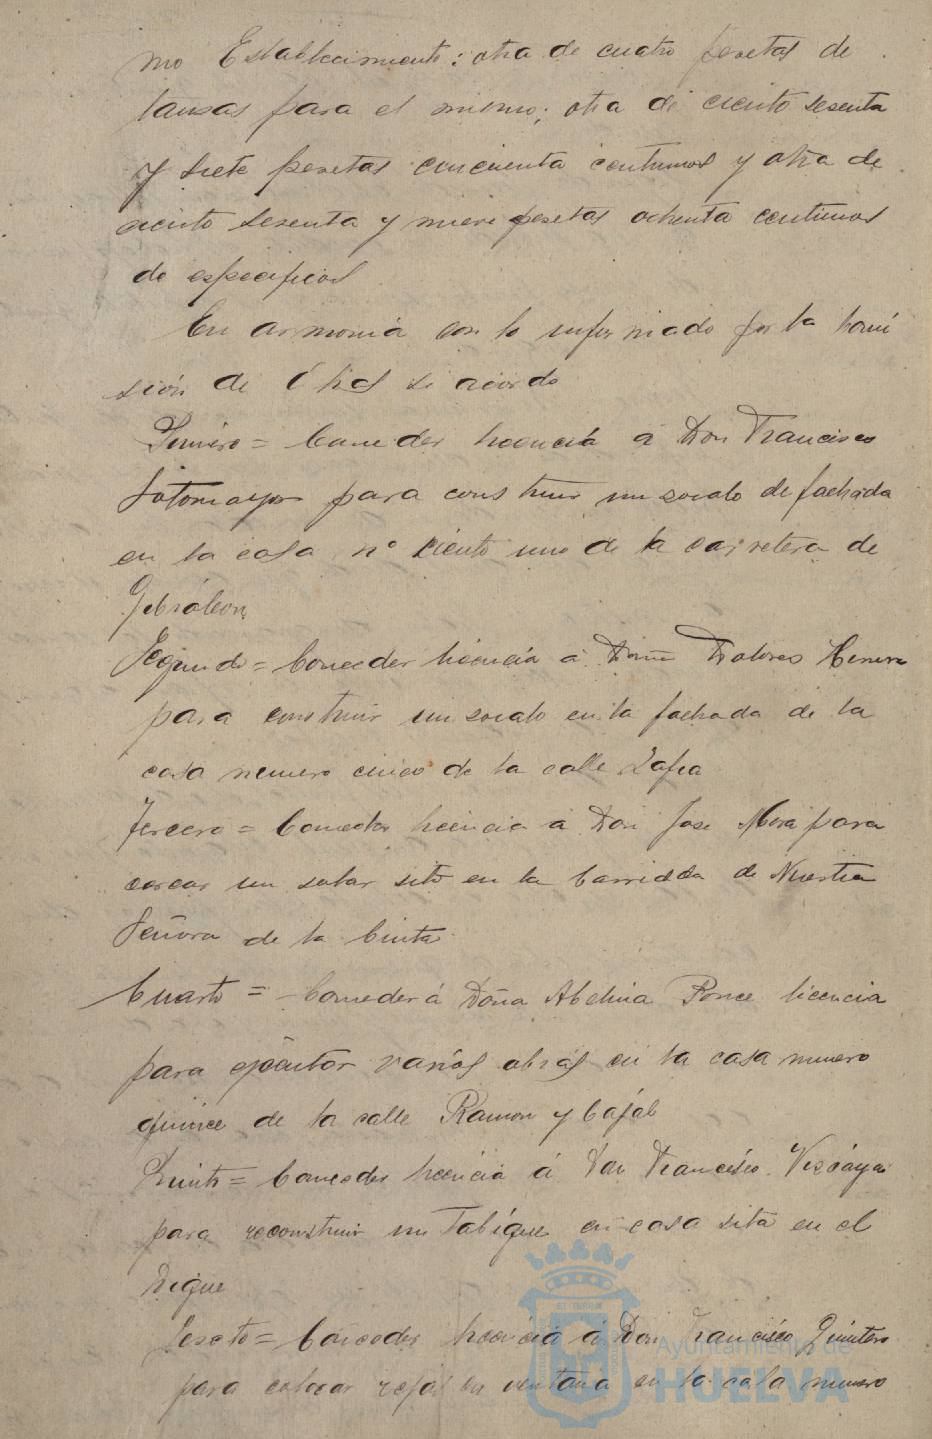 mo Establecimiento; otra de cuatro pesetas de
para el mismo; otra de ciento sesenta
y siete pesetas cincuenta centimos y otra de
ciento sesenta y nueve pesetas ochenta centimos
de especificos
En armonia con lo informado por la Comi
sión de Obras se acordo
Primero = Conceder licencia á Don Francisco
Sotomayor para construir un zocalo de fachada
en la casa nº ciento uno de la carretera de
Gibraleon
Segundo = Conceder licencia á Doña Dolores
para construir un zocalo en la fachada de la
casa numero cinco de la calle Zafra
Tercero = Conceder licencia á Don Jose Mora para
cercar un solar sito en la barriada de Nuestra
Señora de la Cinta
Cuarto = Conceder á Doña Abelina Ponce licencia
para ejecutar varias obras en la casa numero
quince de la calle Ramon y Cajal
Quinto = Conceder licencia á Don Francisco Vizcaya
para reconstruir un tabique en casa sita en el
Dique
Sexto = Conceder licencia á Don Francisco Quintero
para colocar rejas en ventana en la casa numero
Ayuntamiento de
HUELVA